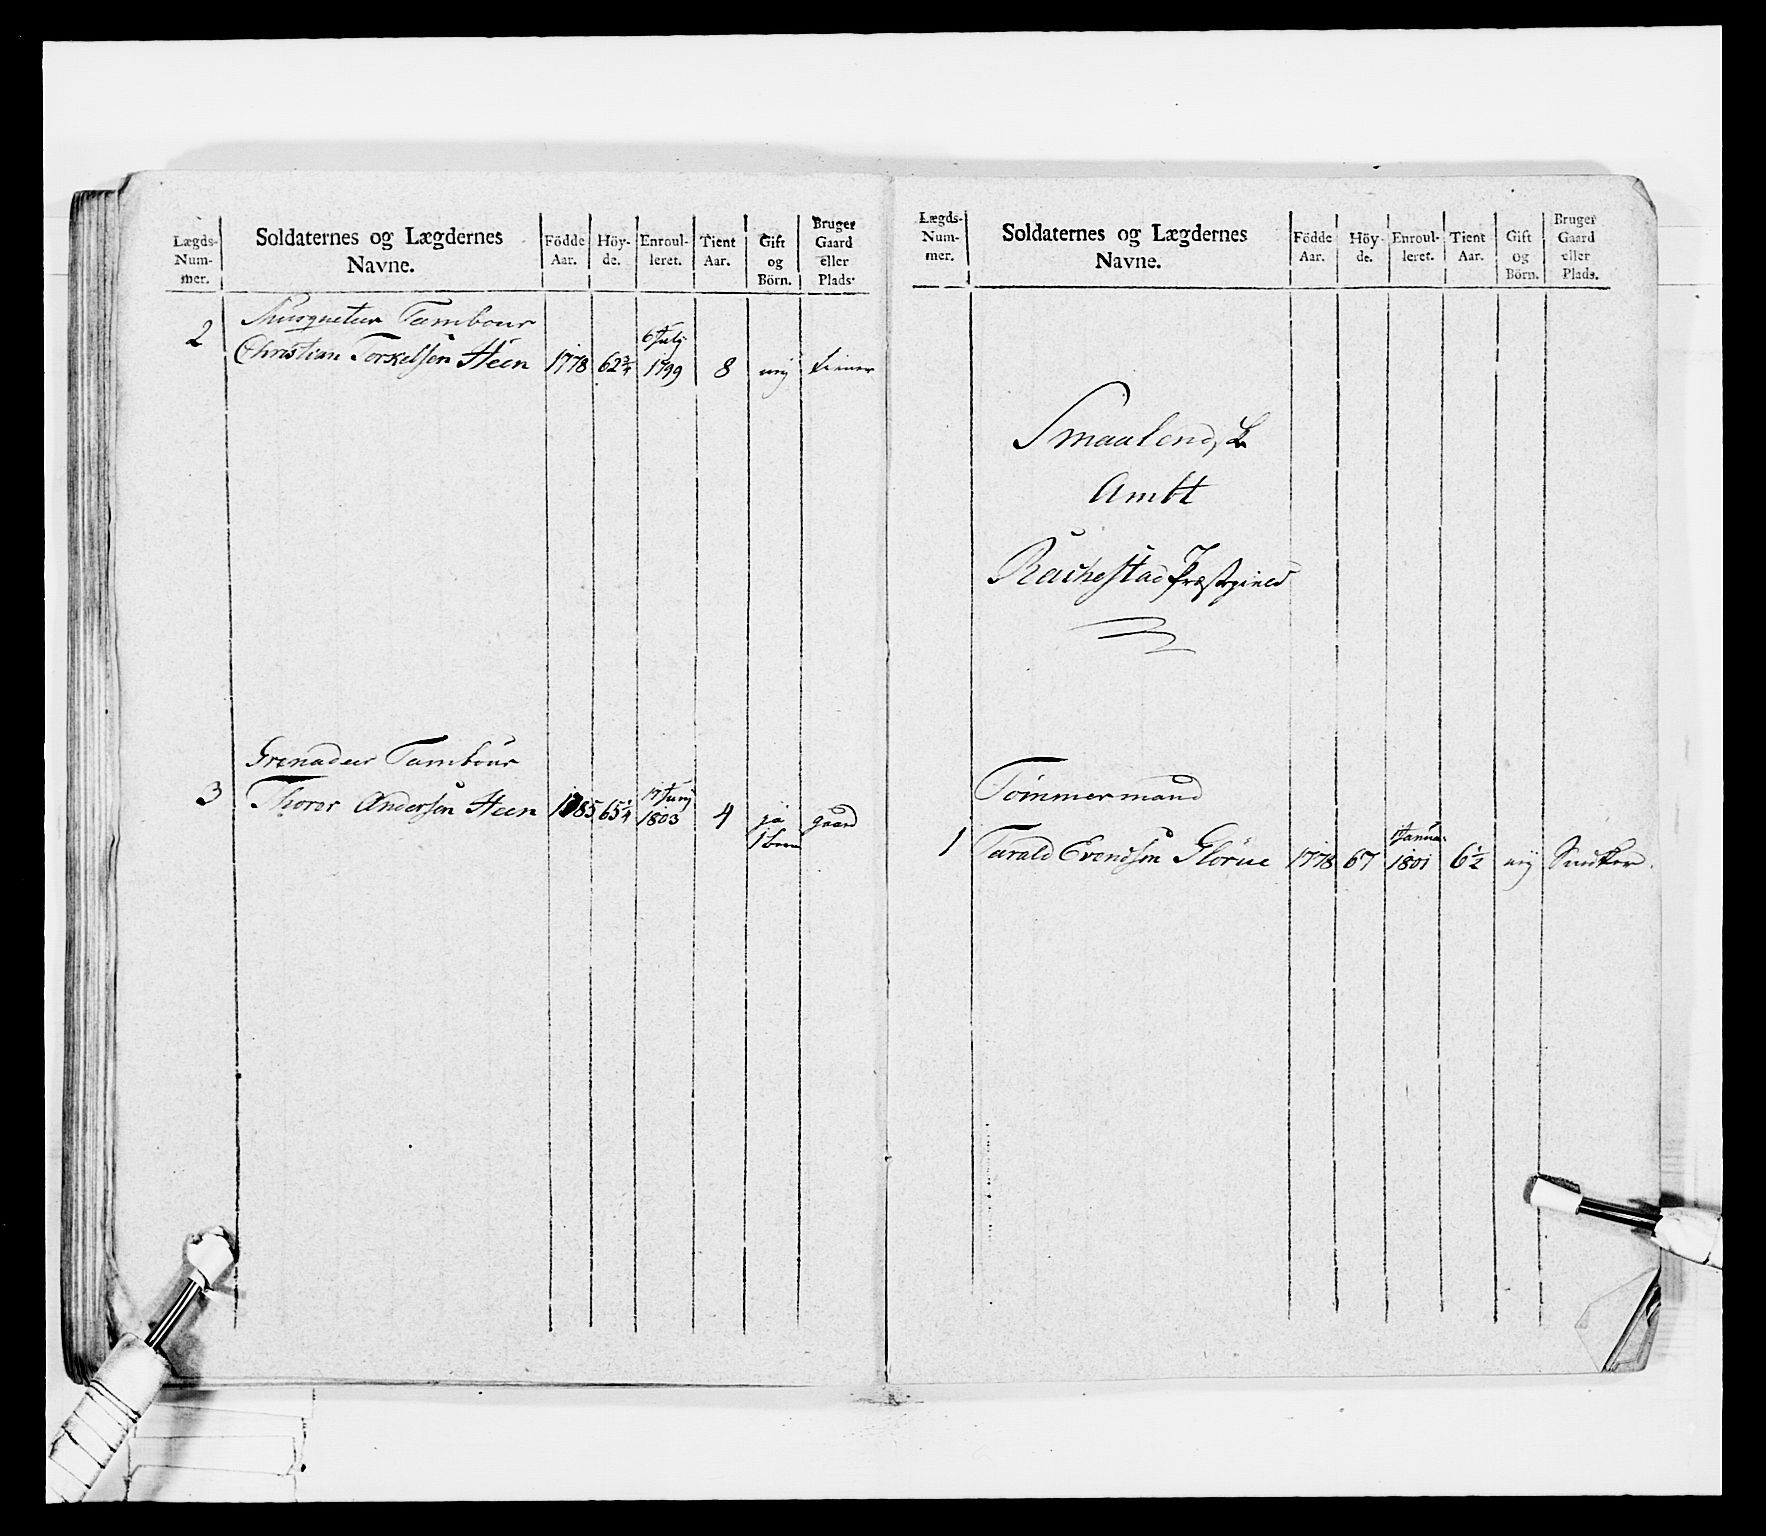 Lægds-Num-mer. Soldaternes og Lægdernes Navne. Födde Aar. Höy-de. Enroul-leret. Tient Aar. Gift og Börn. Bruger Gaard eller Plads.
Musqueteer Tambour
2 Christian Torkelsen Heen 1778 62 3/4 6 July 1799 8 nej tiener
Grenadeer Tambour
3 Thoror Andersen Heen 1785 65 3/4 17 Junj 1803 4 ja 1 barn gaard
Lægds-Num-mer. Soldaternes og Lægdernes Navne. Födde Aar. Höy-de. Enroul-leret. Tient Aar. Gift og Börn. Bruger Gaard eller Plads.
Smaalend,
Ambt
Rackestad Præstegield
Tömmermand
1 Tarald Evendsen Glorue 1778 67 1 Janua: 1801 6 1/2 nej